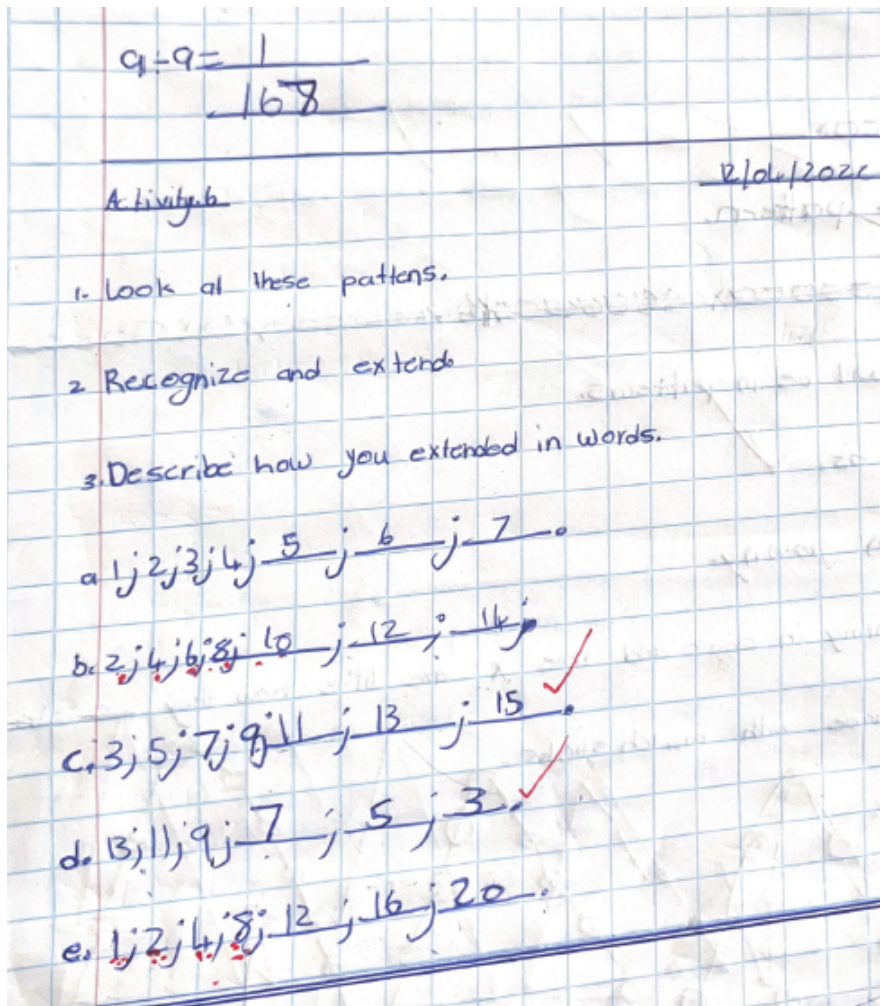 9÷9= 1
168
Activity.6
12/04/202
1. Look at these pattens.
2 Recognize and extend.
3. Describe how you extended in words.
a 1; 2; 3; 4; 5; 6; 7.
b. 2; 4; 6; 8; 10; 12; 14;
c. 3; 5; 7; 9; 11; 13; 15.
d. 13; 11; 9; 7; 5; 3.
e. 1; 2; 4; 8; 12; 16; 20.